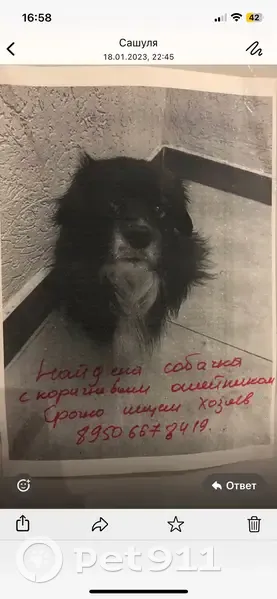 16:58
42
Сашуля
18.01.2023, 22:45
Найдена собачка
с коричневым ошейником
Срочно ищем хозяев
89506678419..
Ответ
pet911